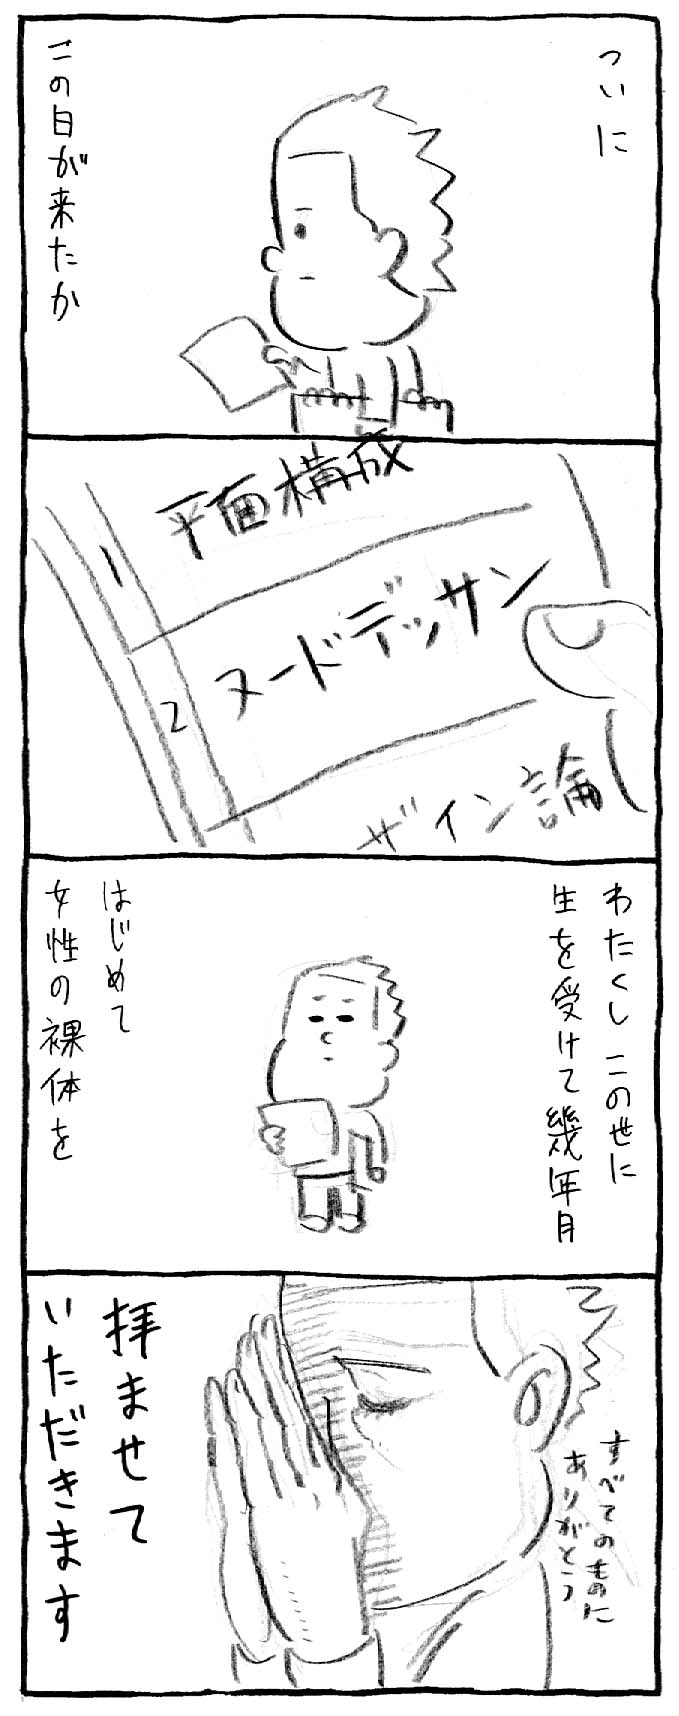 ついに
この日が来たか
平面構成
1
ヌードデッサン
2
ザイン論
わたくし この世に
生を受けて幾年月
はじめて
女性の裸体を
すべてのものに
ありがとう
拝ませて
いただきます